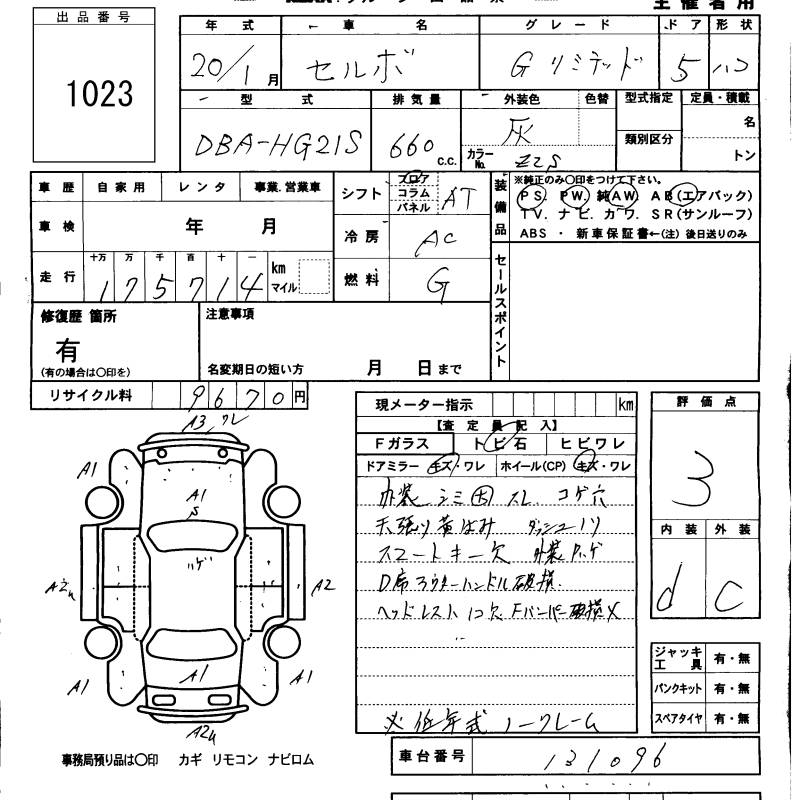 主催者用
出品番号
1023
年式 車名 グレード ドア 形状
20/1月 セルボ Gリミテッド 5 ハコ
型式 排気量 外装色 色替 型式指定 定員・積載
DBA-HG21S 660 c.c. 灰 名
カラーNo. Z2S 類別区分 トン
車歴 自家用 レンタ 事業.営業車
車検 年 月
走行 十万 万 千 百 十 一
175714 km マイル
シフト フロア コラム パネル AT
冷房 AC
燃料 G
装備品
※純正のみ〇印をつけて下さい。
PS. PW. 純AW. AB(エアバック)
TV. ナビ. カワ. SR(サンルーフ)
ABS ・ 新車保証書←(注) 後日送りのみ
セールスポイント
修復歴 箇所
有
(有の場合は〇印を)
注意事項
名変期日の短い方 月 日まで
リサイクル料 9670円
現メーター指示 km
【査定員記入】
Fガラス トビ石 ヒビワレ
ドアミラー キズ・ワレ ホイール(CP) キズ・ワレ
内装 シミ 大 スレ コゲ穴
天張り黄ばみ ダッシュノリ
スマートキー欠 外装ハゲ
D席アウターハンドル破損
ヘッドレスト1コ欠 Fバンパー破損X
※低年式 ノークレーム
評価点
3
内装 外装
d C
ジャッキ工具 有・無
パンクキット 有・無
スペアタイヤ 有・無
車台番号 131096
A3 ワレ
A1
A1
S
ハゲ
A2
A2
A1
A1
A1
A2
事務局預り品は〇印 カギ リモコン ナビロム